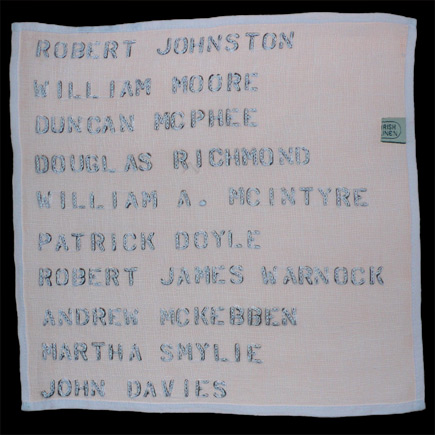 ROBERT JOHNSTON
WILLIAM MOORE
DUNCAN MCPHEE
RISH
INEN
DOUGLAS RICHMOND
WILLIAM A. MCINTYRE
PATRICK DOYLE
ROBERT JAMES WARNOCK
ANDREW MCKEBBEN
MARTHA SMYLIE
JOHN DAVIES